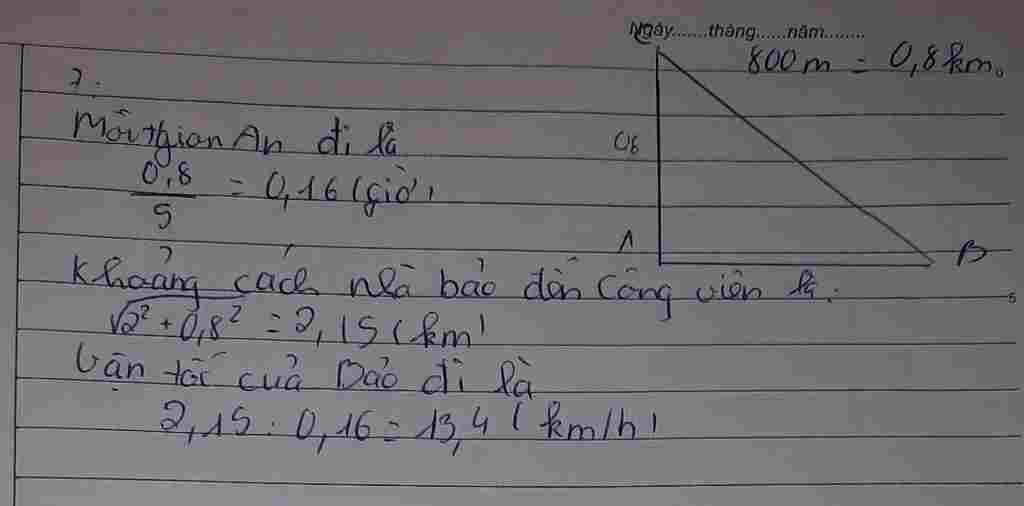 Ngày.......tháng......năm........
800m = 0,8km.
7.
thời gian An đi là
0,8
5
= 0,16 (giờ)
0,8
A
B
Khoảng cách nhà bảo đến Công viên là:
√2² + 0,8² = 2,15 (km)
Vận tốc cuả Bảo đi là
2,15 : 0,16 = 13,4 (km/h)